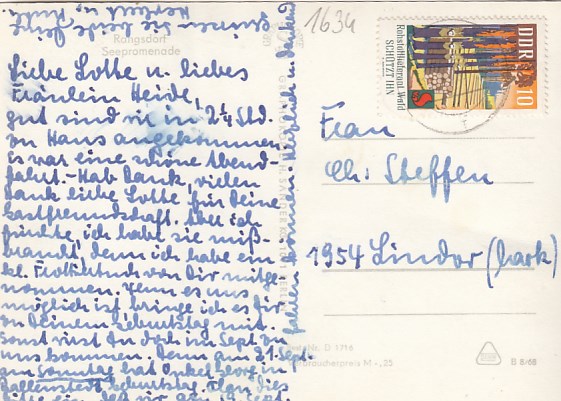 Rangsdorf
Seepromenade
Liebe Lotte u. liebes
Fräulein Heide,
gut sind wir in 2¼ Std.
zu Haus angekommen.
Es war eine schöne Abend-
fahrt. - Hab Dank, vielen
Dank liebe Lotte für Deine
Gastfreundschaft. Aber ich
fürchte, ich habe sie miß-
braucht, denn ich habe ein
kl. Frottiertuch von Dir mitge-
nommen. Wenn es uns
möglich ist bringe ich es Dir
zu Deinem Geburtstag mit.
Sonst wirst Du doch im Sept. zu
uns kommen. Denn am 21. Sept.
am Sonntag hat Onkel Georg in
Ballenstedt Geburtstag.
1634
DDR
10
Rohstofflieferant Wald
SCHÜTZT IHN
Frau
Ch: Steffen
1954 Lindow (Mark)
Best.-Nr. D 1716
Verbraucherpreis M -,25
B 8/68